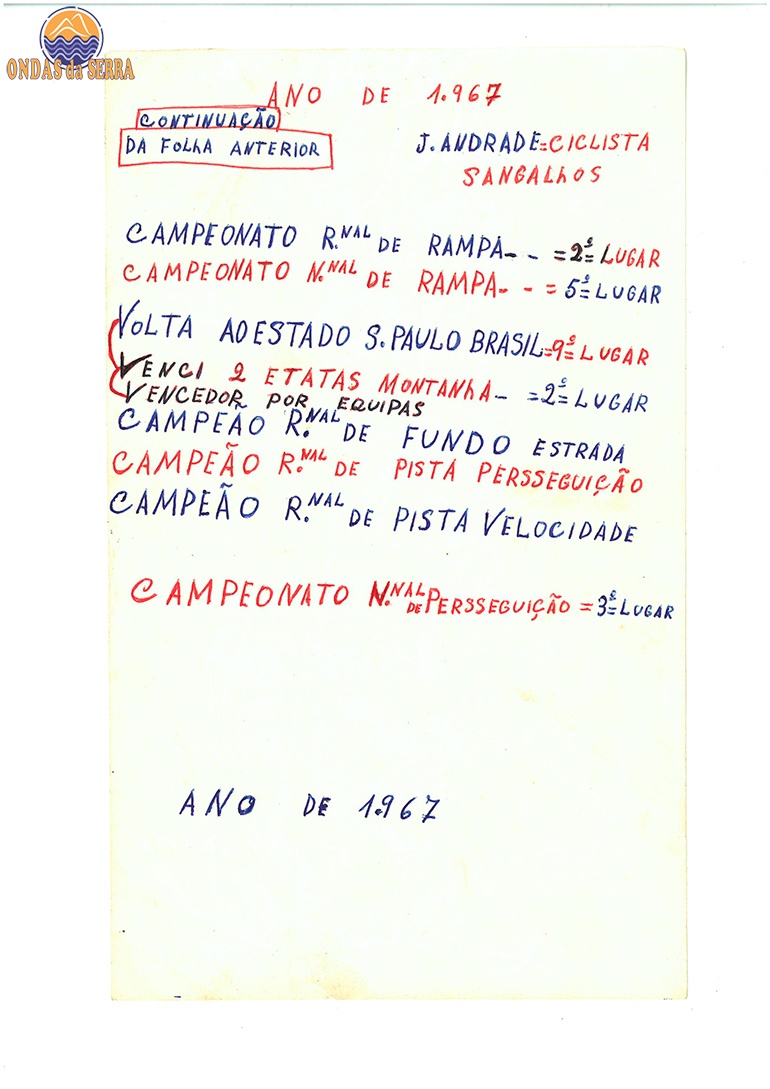 ONDAS da SERRA
ANO DE 1.967
CONTINUAÇÃO
DA FOLHA ANTERIOR
J. ANDRADE=CICLISTA
SANGALHOS
CAMPEONATO R.NAL DE RAMPA-- =2º LUGAR
CAMPEONATO N.NAL DE RAMPA-- = 5º LUGAR
VOLTA AO ESTADO S. PAULO BRASIL=9º LUGAR
VENCI 2 ETATAS MONTANHA- =2º LUGAR
VENCEDOR POR EQUIPAS
CAMPEÃO R.NAL DE FUNDO ESTRADA
CAMPEÃO R.NAL DE PISTA PERSSEGUIÇÃO
CAMPEÃO R.NAL DE PISTA VELOCIDADE
CAMPEONATO N.NAL DE PERSSEGUIÇÃO = 3º LUGAR
ANO DE 1.967